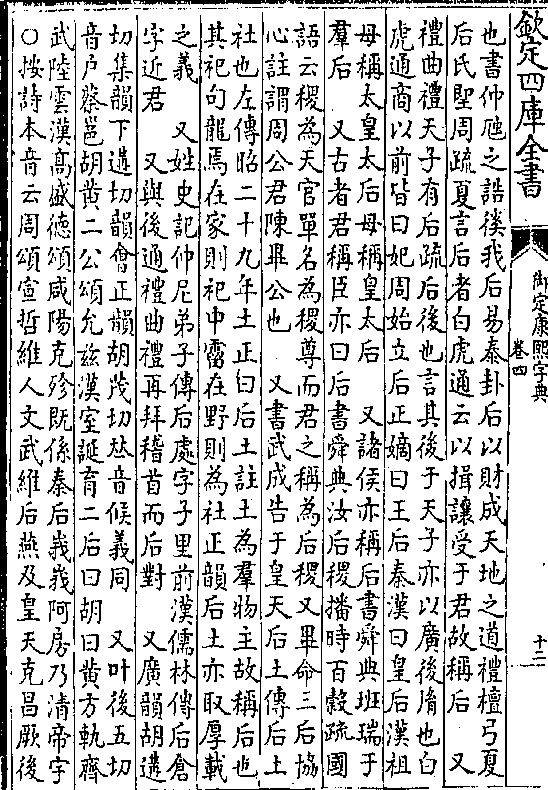 欽定四庫全書
御定康熙字典
卷四
十二
也書仲虺之誥徯我后易泰卦后以財成天地之道禮檀弓夏
后氏堲周疏夏言后者白虎通云以揖讓受于君故稱后　又
禮曲禮天子有后疏后後也言其後于天子亦以廣後脩也白
虎通商以前皆曰妃周始立后正嫡曰王后秦漢曰皇后漢祖
母稱太皇太后母稱皇太后　又諸侯亦稱后書舜典班瑞于
羣后　又古者君稱臣亦曰后書舜典汝后稷播時百穀疏國
語云稷為天官單名為稷尊而君之稱為后稷又畢命三后協
心註謂周公君陳畢公也　又書武成告于皇天后土傳后土
社也左傳昭二十九年土正曰后土註土為羣物主故稱后也
其祀句龍焉在家則祀中霤在野則為社正韻后土亦取厚載
之義　又姓史記仲尼弟子傳后處字子里前漢儒林傳后倉
字近君　又與後通禮曲禮再拜稽首而后對　又廣韻胡遘
切集韻下遘切韻會正韻胡茂切𠀤音候義同　又叶後五切
音戶蔡邕胡黃二公頌允茲漢室誕育二后曰胡曰黃方軌齊
武陸雲漢高盛德頌咸陽克殄既係秦后峩峩阿房乃清帝字
○按詩本音云周頌宣哲維人文武維后燕及皇天克昌厥後